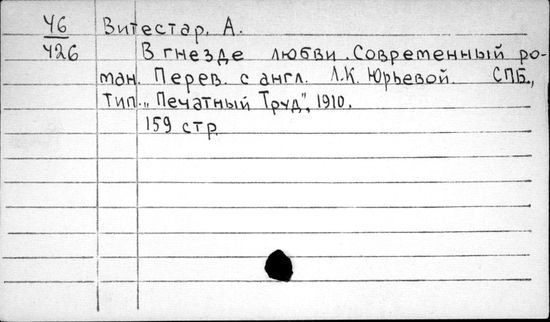 Ч6 Витестар, А.
Ч26 В гнезде любви. Современный ро-
ман. Перев. с англ. Л.К. Юрьевой. СПБ.,
тип. „Печатный Труд", 1910.
159 стр